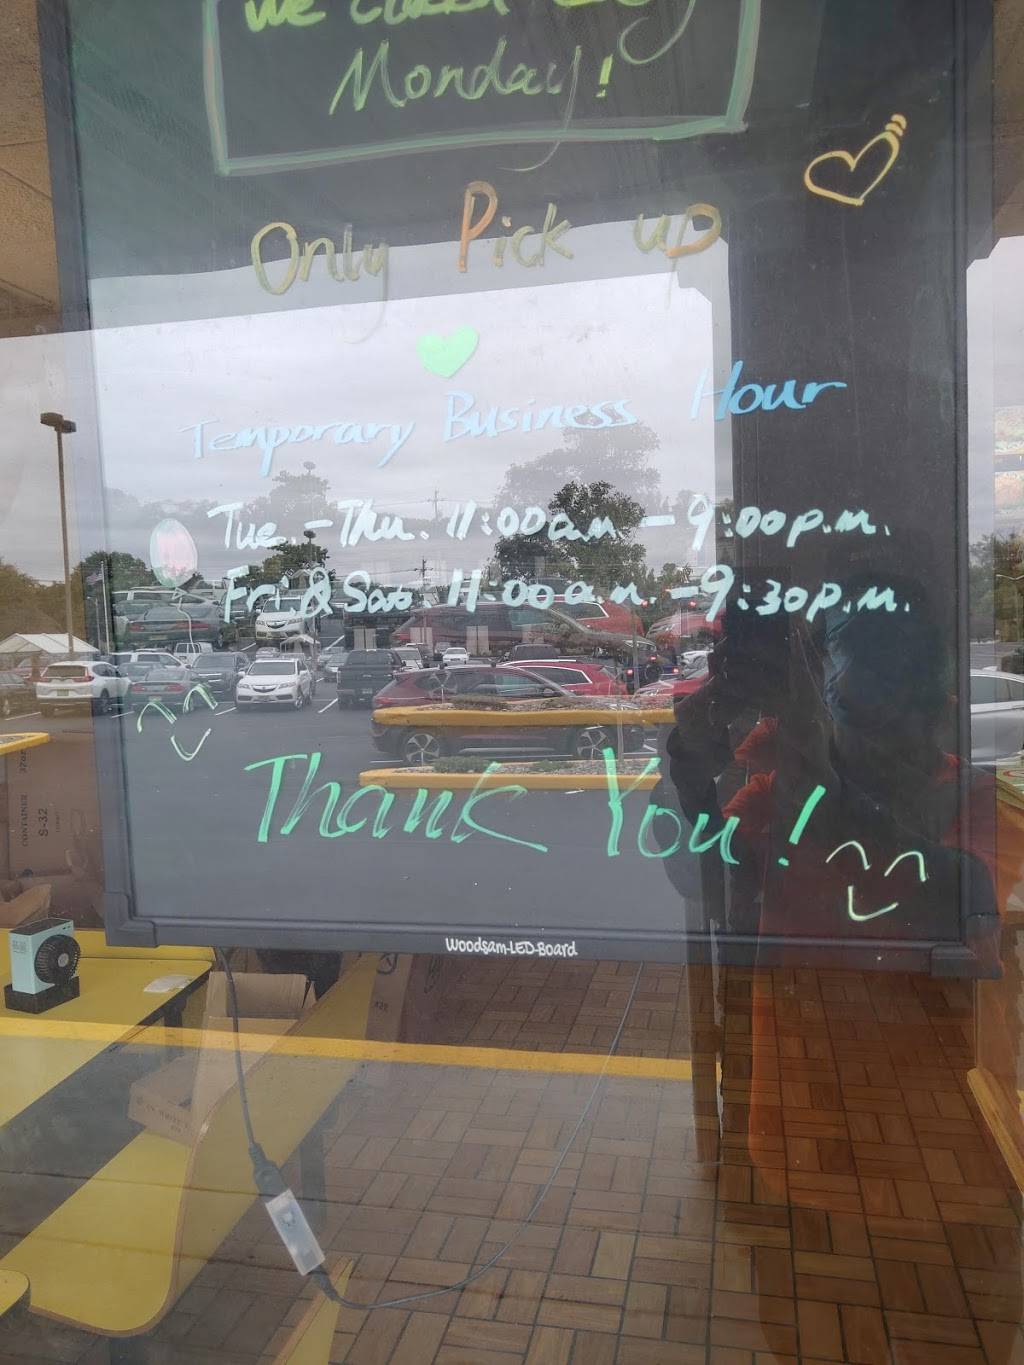 We closed
Monday!
Only Pick up
Temporary Business Hour
Tue. - Thu. 11:00a.m. - 9:00p.m.
Fri. & Sat. 11:00a.m. - 9:30p.m.
Thank You!
Woodsam-LED-Board
CONTAINER 32oz
S-32